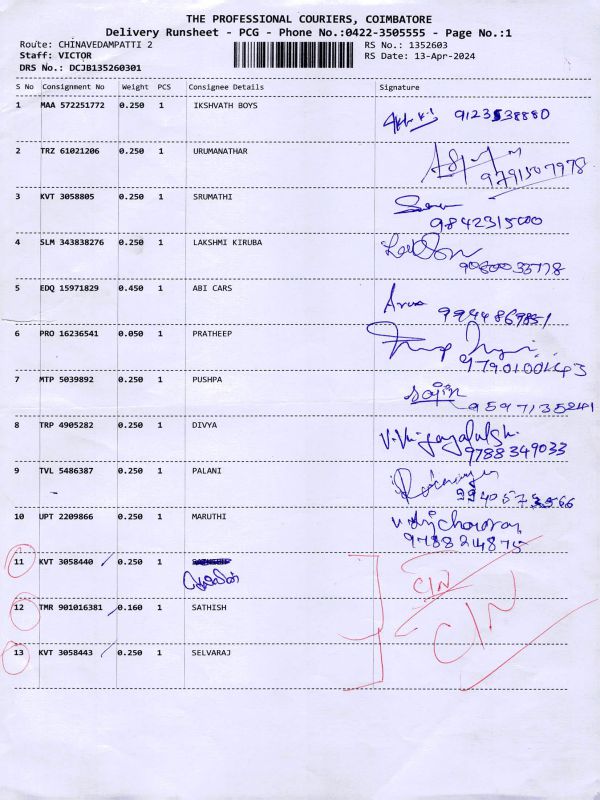 THE PROFESSIONAL COURIERS, COIMBATORE
Delivery Runsheet - PCG - Phone No.:0422-3505555 - Page No.:1
Route: CHINAVEDAMPATTI 2 RS No.: 1352603
Staff: VICTOR RS Date: 13-Apr-2024
DRS No.: DCJB135260301
S No Consignment No Weight PCS Consignee Details Signature
1 MAA 572251772 0.250 1 IKSHVATH BOYS
2 TRZ 61021206 0.250 1 URUMANATHAR
9791507978
3 KVT 3058805 0.250 1 SRUMATHI
4 SLM 343838276 0.250 1 LAKSHMI KIRUBA
5 EDQ 15971829 0.450 1 ABI CARS
9944869851
6 PRO 16236541 0.050 1 PRATHEEP
7 MTP 5039892 0.250 1 PUSHPA
Sajin
8 TRP 4905282 0.250 1 DIVYA
9788349033
9 TVL 5486387 0.250 1 PALANI
10 UPT 2209866 0.250 1 MARUTHI
11 KVT 3058440 0.250 1
C/N
12 TMR 901016381 0.160 1 SATHISH
C/N
13 KVT 3058443 0.250 1 SELVARAJ